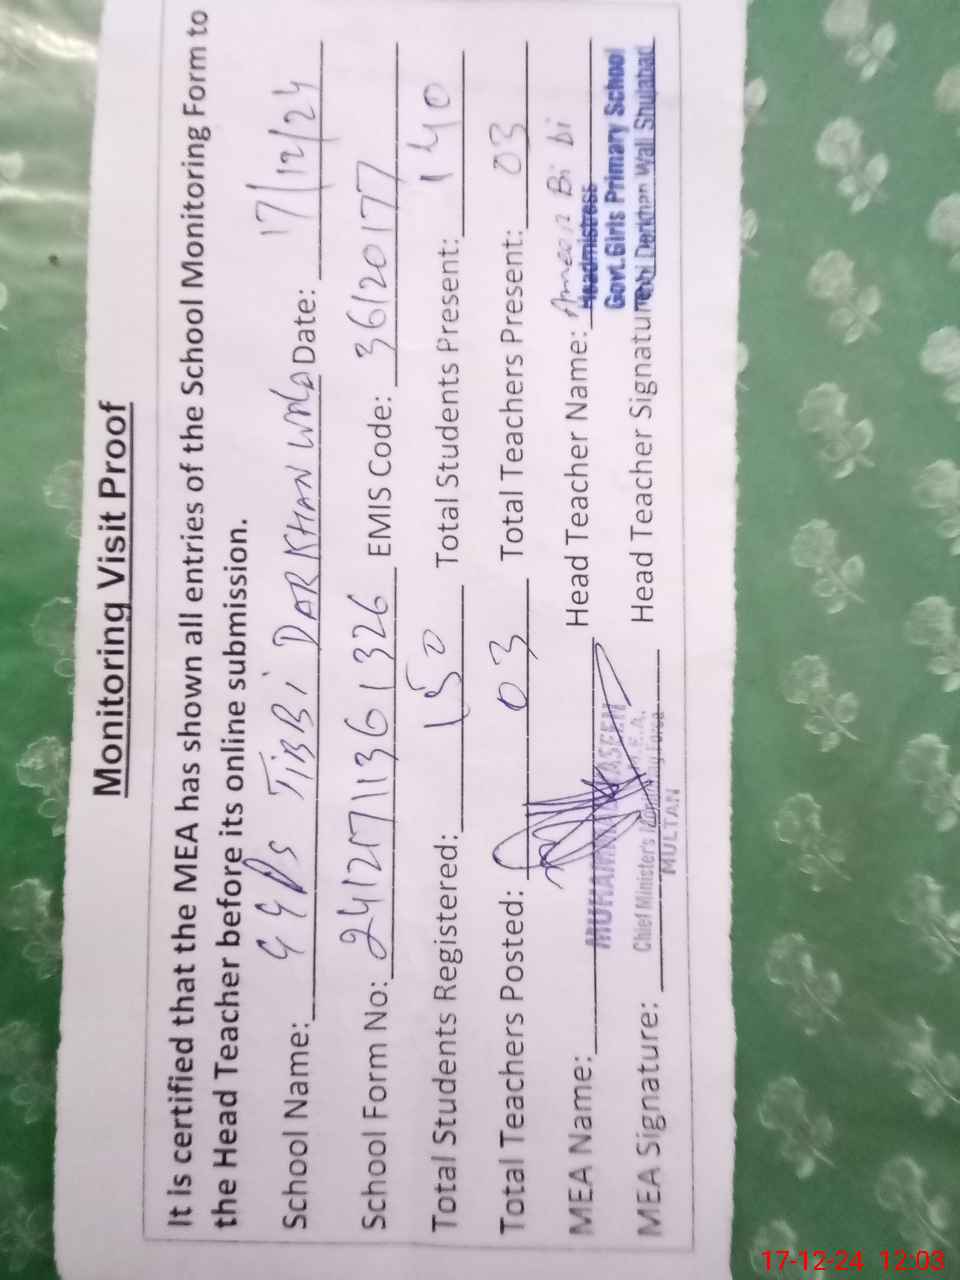 Monitoring Visit Proof
It is certified that the MEA has shown all entries of the School Monitoring Form to
the Head Teacher before its online submission.
School Name: GGPS TIBBI DARKHAN WALA Date: 17/12/24
School Form No: 24121711361326 EMIS Code: 36120177
Total Students Registered: 150 Total Students Present: 140
Total Teachers Posted: 03 Total Teachers Present: 03
MEA Name: MUHAMMAD Head Teacher Name: Bi bi
Headmistress
Govt. Girls Primary School
MEA Signature: Chief Minister's Monitoring Force Head Teacher Signature: Darkhan Wali Shujabad
MULTAN
17-12-24 12:03